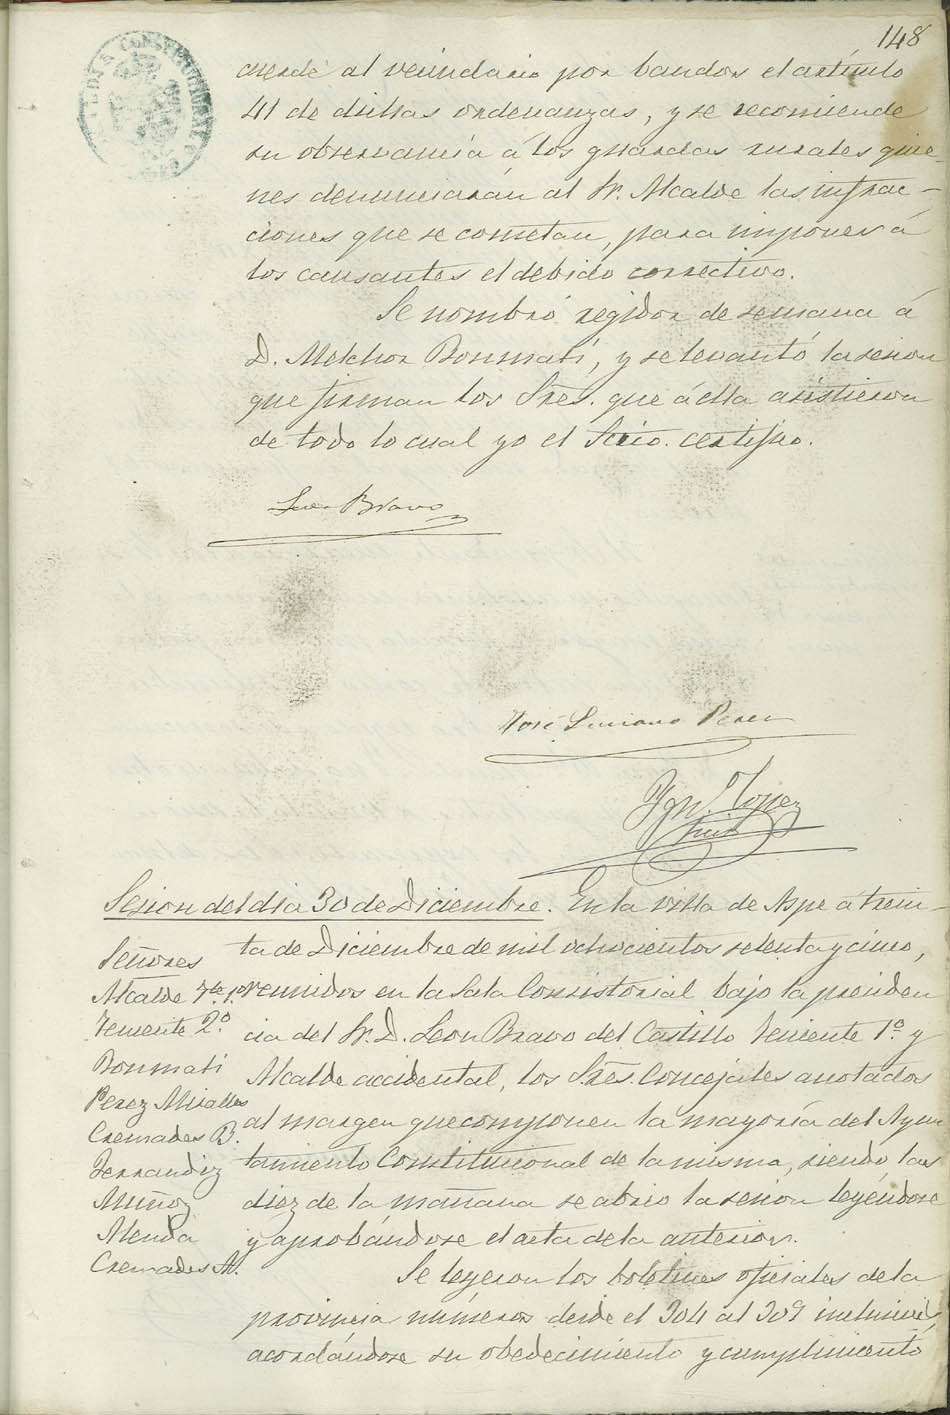 148
cuerde al vecindario por bandos el artículo
41 de dichas ordenanzas, y se recomiende
su observancia á los guardas rurales quie-
nes denunciarán al Sr. Alcalde las infrac-
ciones que se cometan, para imponer á
los causantes el debido correctivo.
Se nombró regidor de semana á
D. Melchor Bonmatí, y se levantó la sesion
que firman los Sres. que á ella asistieron
de todo lo cual yo el Srio. certifico.
Leon Bravo
José Luciano Perez
Ign.º Lopez
Srio
Sesion del dia 30 de Diciembre. En la villa de Aspe á trein-
ta de Diciembre de mil ochocientos setenta y cinco,
reunidos en la Sala Consistorial bajo la presiden
cia del Sr. D. Leon Bravo del Castillo Teniente 1.º y
Alcalde accidental, los Sres. Concejales anotados
al margen que componen la mayoría del Ayun
tamiento Constitucional de la misma, siendo las
diez de la mañana se abrio la sesion leyéndose
y aprobándose el acta de la anterior.
Señores
Alcalde Tte. 1.º
Teniente 2.º
Bonmati
Perez Miralles
Cremades B.
Ferrandiz
Muñoz
Alenda
Cremades A.
Se leyeron los boletines oficiales de la
provincia números desde el 304 al 309 inclusives,
acordándose su obedecimiento y cumplimiento